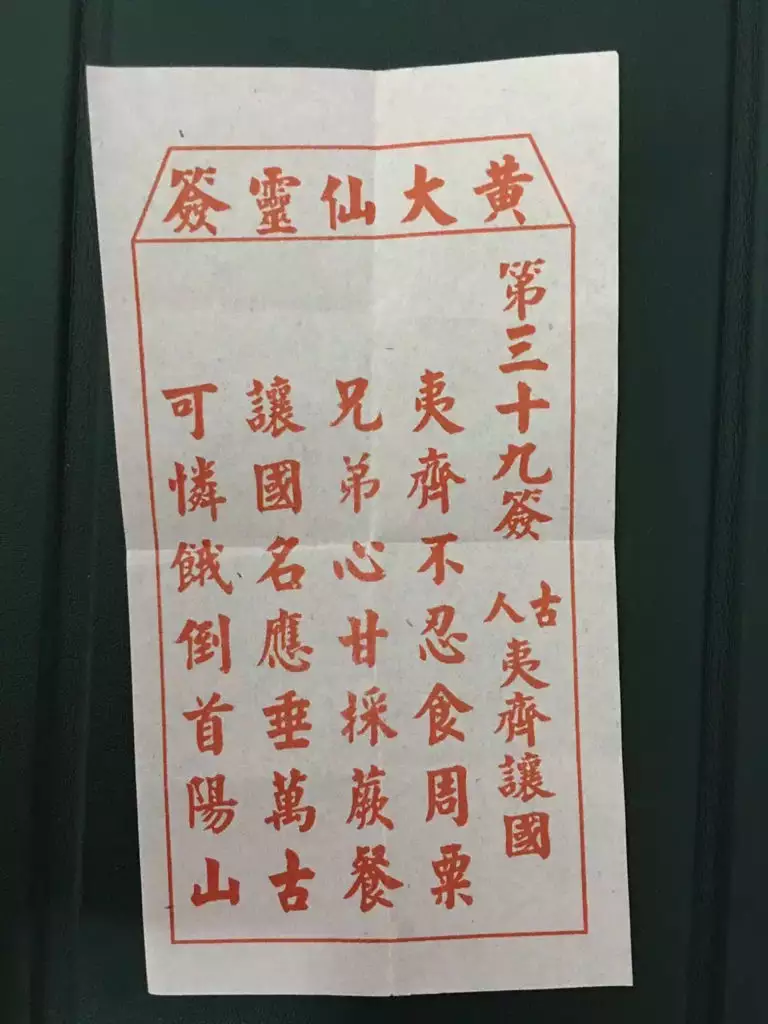 黃大仙靈簽
第三十九簽 古人 夷齊讓國
夷齊不忍食周粟
兄弟心甘採蕨餐
讓國名應垂萬古
可憐餓倒首陽山